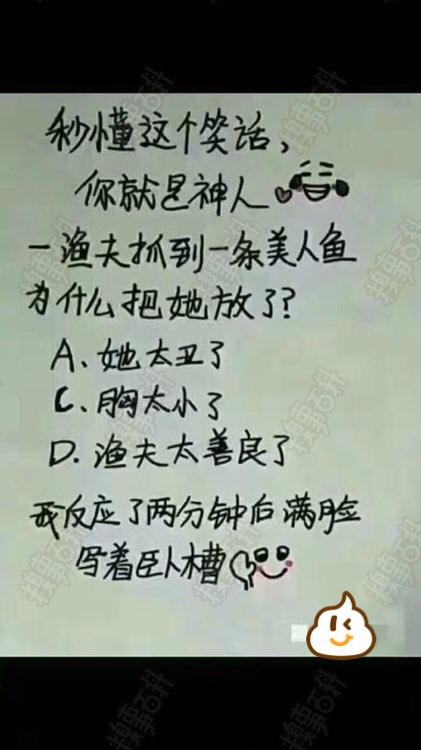 秒懂这个笑话，
你就是神人
一渔夫抓到一条美人鱼
为什么把她放了？
A、她太丑了
C、胸太小了
D、渔夫太善良了
我反应了两分钟后满脸
写着卧槽